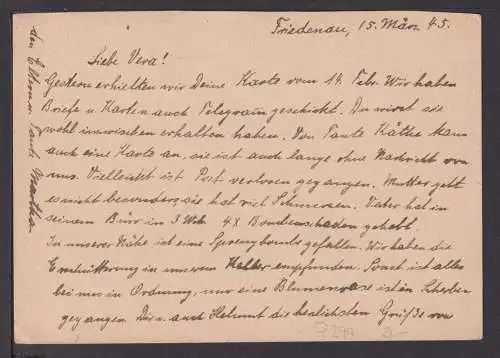 Friedenau, 15. März 45.
Liebe Vera!
Gestern erhielten wir Deine Karte vom 14. Febr. Wir haben
Briefe u. Karten auch Telegramm geschickt. Du wirst sie
wohl inzwischen erhalten haben. Von Tante Käthe kam
auch eine Karte an, sie ist auch lange ohne Nachricht von
uns. Vielleicht ist Post verloren gegangen. Mutter geht
es nicht besonders, sie hat viel Schmerzen. Vater hat in
seinem Büro in 3 Wch. 4x Bombenschaden gehabt.
In unserer Nähe ist eine Sprengbombe gefallen. Wir haben die
Erschütterung in unserem Keller empfunden. Sonst ist alles
bei uns in Ordnung, nur eine Blumenvase ist in Scherben
gegangen. Dir u. auch Helmut die herzlichsten Grüße von
den Eltern u. Tante Martha